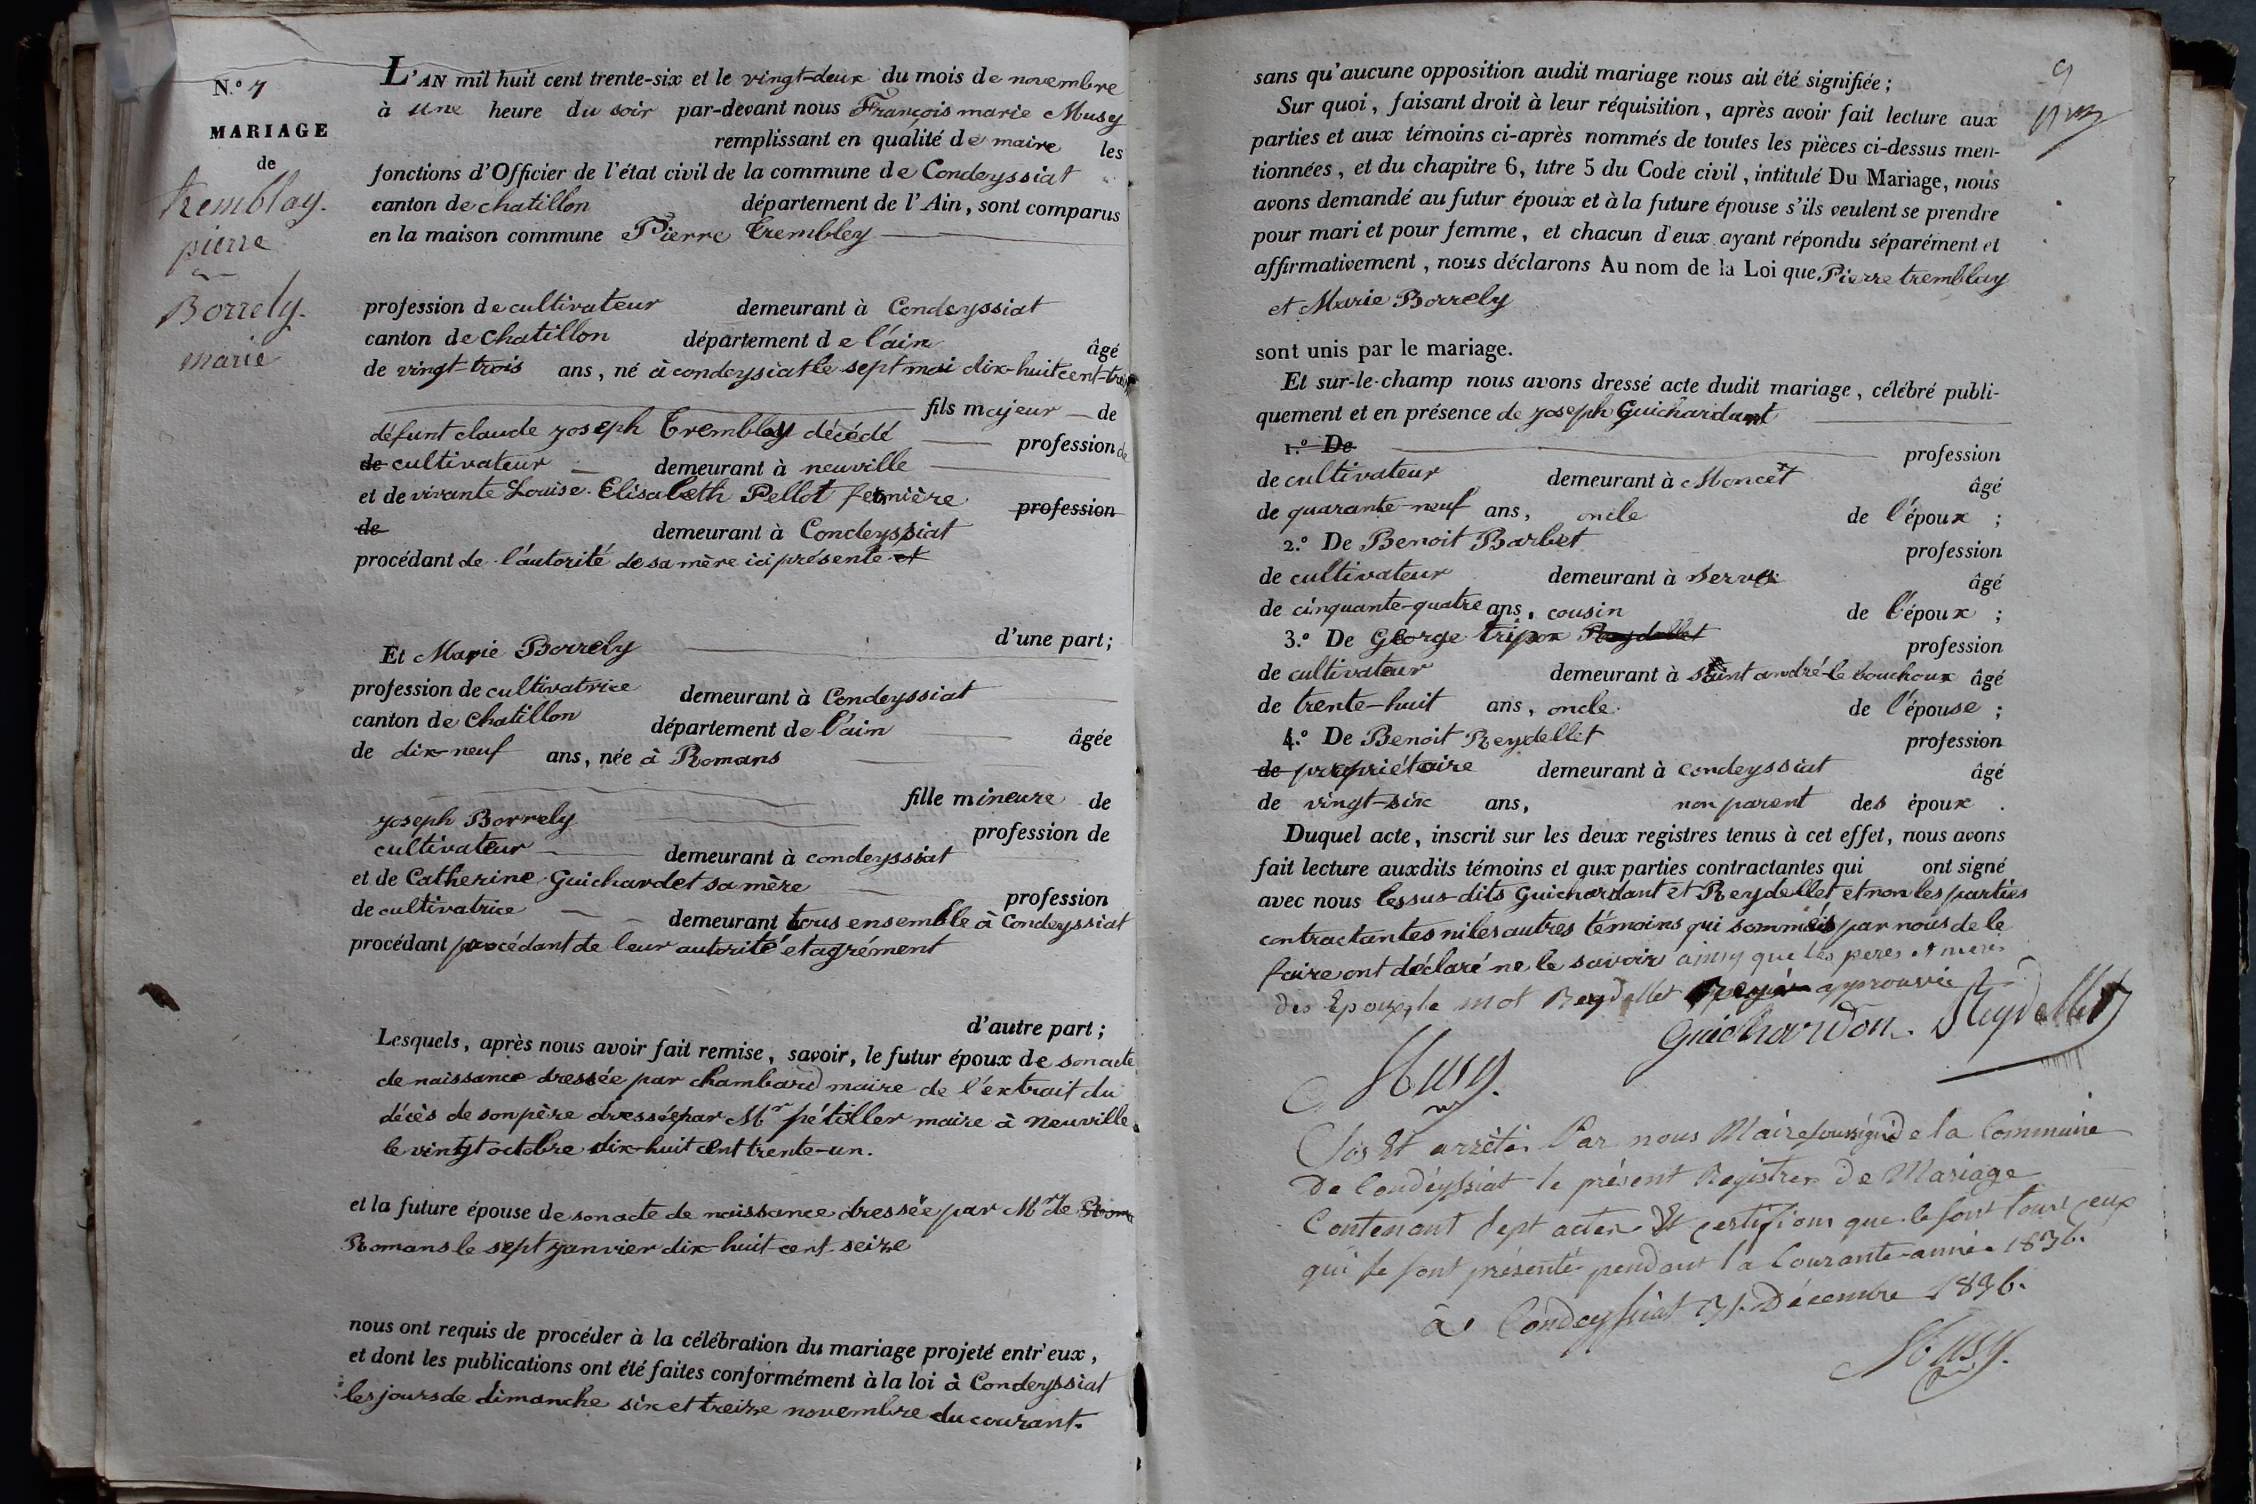 N.º 7
MARIAGE
de
tremblay.
pierre
Borrely.
marie
L'AN mil huit cent trente-six et le vingt-deux du mois de novembre
à une heure du soir par-devant nous François marie Musy
remplissant en qualité de maire les
fonctions d'Officier de l'état civil de la commune de Condeyssiat
canton de chatillon département de l'Ain, sont comparus
en la maison commune Pierre Trembley
profession de cultivateur demeurant à Condeyssiat
canton de chatillon département de l'ain âgé
de vingt-trois ans, né à condeysiat le sept mai dix-huit cent-treize
fils majeur de
défunt claude joseph Tremblay décédé profession de
de cultivateur demeurant à neuville
et de vivante Louise Elisabeth Pellot fermière profession
de demeurant à Condeyssiat
procédant de l'autorité de sa mère ici présente et
d'une part;
Et Marie Borrely
profession de cultivatrice demeurant à Condeyssiat
canton de Chatillon département de l'ain âgée
de dix-neuf ans, née à Romans
fille mineure de
joseph Borrely profession de
cultivateur demeurant à condeyssiat
et de Catherine Guichardet sa mère profession
de cultivatrice demeurant tous ensemble à Condeyssiat
procédant procédant de leur autorité et agrément
d'autre part;
Lesquels, après nous avoir fait remise, savoir, le futur époux de son acte
de naissance dressée par chambard maire de l'extrait du
décès de son père dressée par Mr pétiller maire à Neuville
le vingt octobre dix-huit cent trente-un.
et la future épouse de son acte de naissance dressée par Mr de
Romans le sept janvier dix-huit-cent seize
nous ont requis de procéder à la célébration du mariage projeté entr'eux,
et dont les publications ont été faites conformément à la loi à Condeyssiat
les jours de dimanche six et treize novembre du courant.
9
sans qu'aucune opposition audit mariage nous ait été signifiée;
Sur quoi, faisant droit à leur réquisition, après avoir fait lecture aux
parties et aux témoins ci-après nommés de toutes les pièces ci-dessus men-
tionnées, et du chapitre 6, titre 5 du Code civil, intitulé Du Mariage, nous
avons demandé au futur époux et à la future épouse s'ils veulent se prendre
pour mari et pour femme, et chacun d'eux ayant répondu séparément et
affirmativement, nous déclarons Au nom de la Loi que Pierre tremblay
et Marie Borrely
sont unis par le mariage.
Et sur-le-champ nous avons dressé acte dudit mariage, célébré publi-
quement et en présence de joseph Guichardant
1.º De profession
de cultivateur demeurant à Moncet âgé
de quarante-neuf ans, oncle de l'époux ;
2.º De Benoit Barbet profession
de cultivateur demeurant à Servas âgé
de cinquante-quatre ans, cousin de l'époux ;
3.º De George tripon Reydellet profession
de cultivateur demeurant à Saint andré-le bouchoux âgé
de trente-huit ans, oncle de l'épouse ;
4.º De Benoit Reydellet profession
de propriétaire demeurant à condeyssiat âgé
de vingt-six ans, non parent des époux .
Duquel acte, inscrit sur les deux registres tenus à cet effet, nous avons
fait lecture auxdits témoins et aux parties contractantes qui ont signé
avec nous les sus-dits Guichardant et Reydellet et non les parties
contractantes ni les autres témoins qui sommés par nous de le
faire ont déclaré ne le savoir ainsy que les peres et meres
des Epoux, le mot Reydellet approuvé
Guichardon. Reydellet
Musy.
Clos Et arrété Par nous Maire soussigné de la Commune
De Condeyssiat le présent Registre De Mariage
Contenant Sept actes Et certifions que ce sont tous ceux
qui se sont présenté pendant la Courante année 1836.
à Condeyssiat 31. Décembre 1836.
Musy.